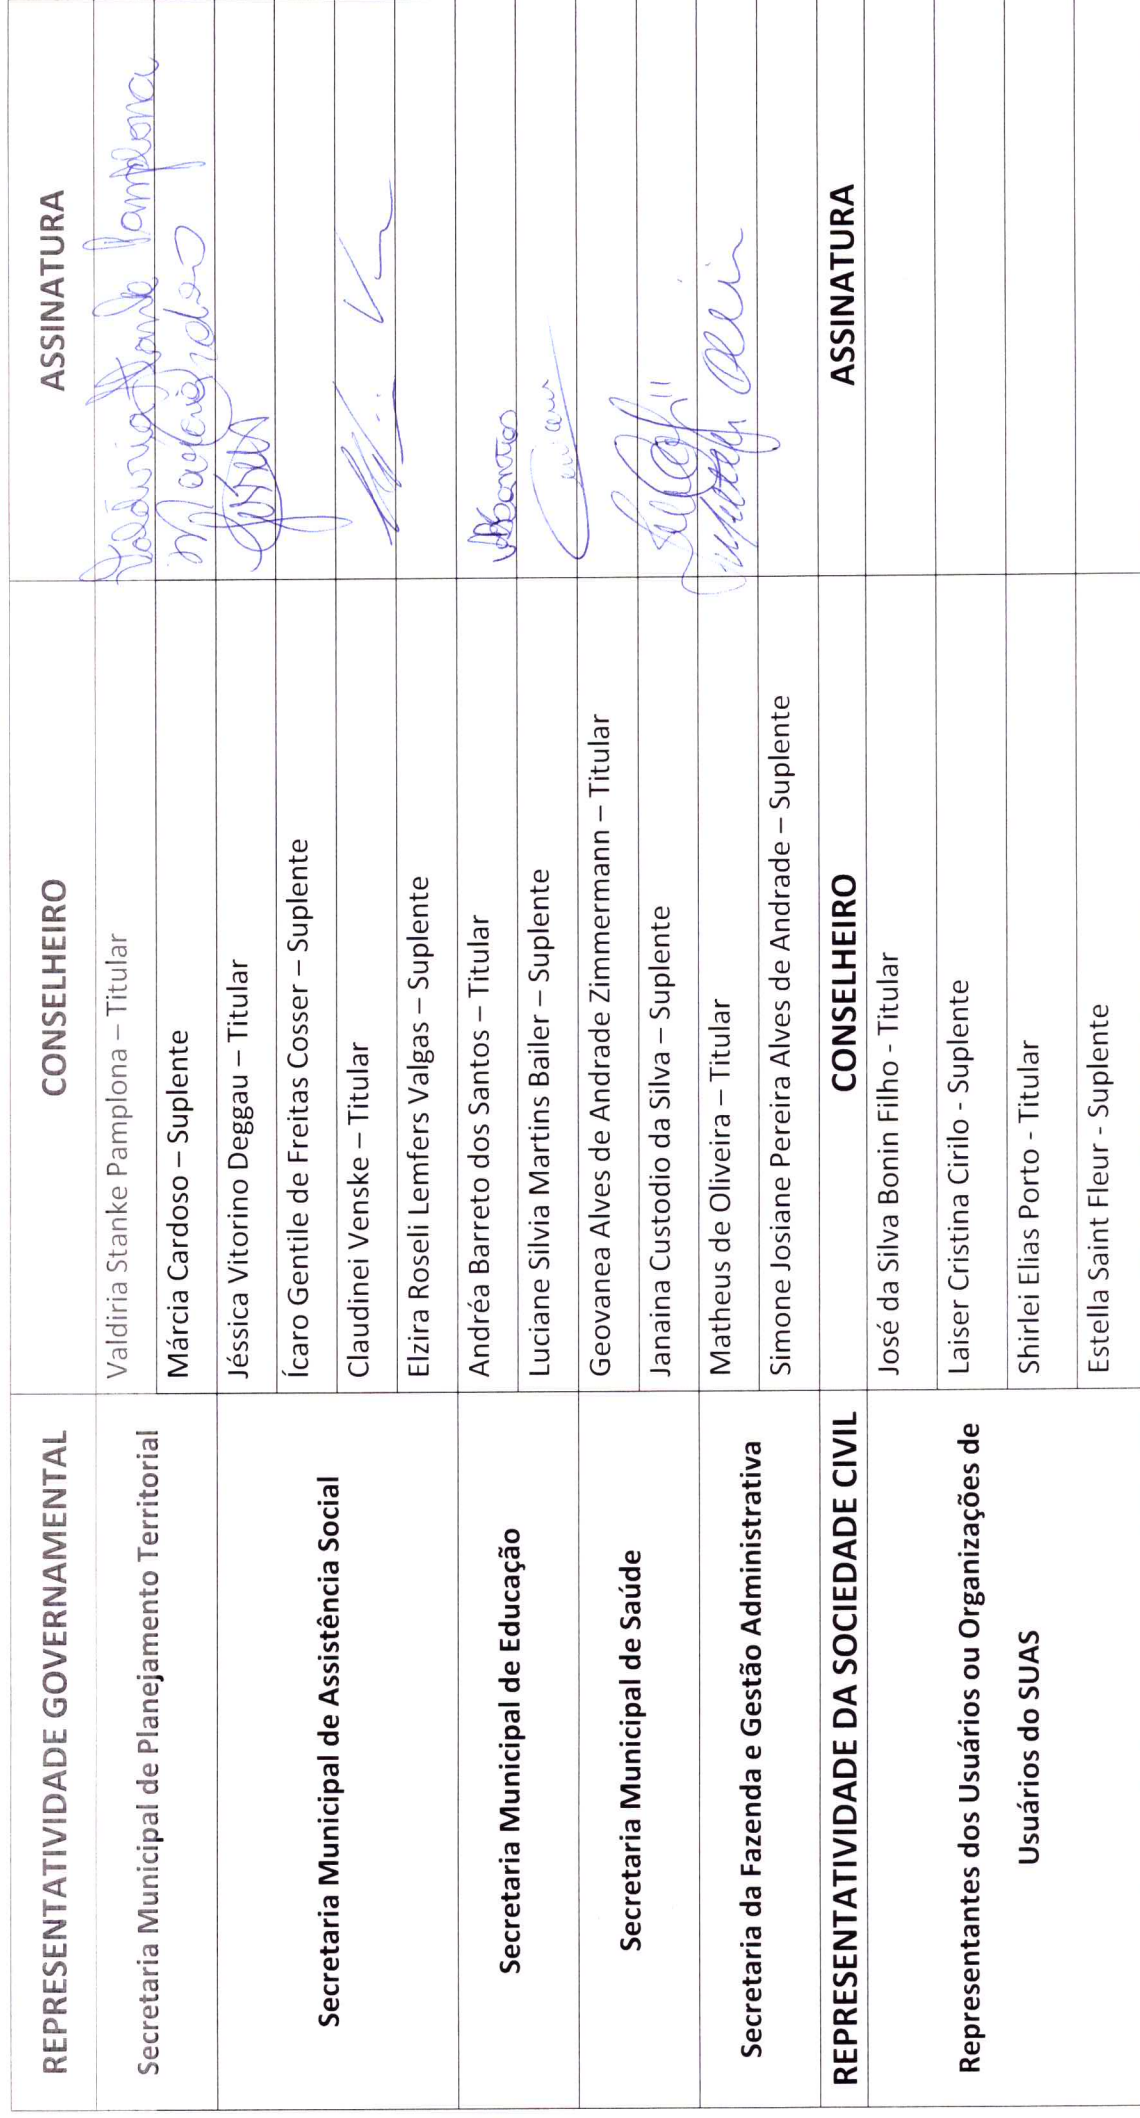 REPRESENTATIVIDADE GOVERNAMENTAL CONSELHEIRO ASSINATURA
Secretaria Municipal de Planejamento Territorial
Valdiria Stanke Pamplona – Titular Valdiria Stanke Pamplona
Márcia Cardoso – Suplente
Secretaria Municipal de Assistência Social
Jéssica Vitorino Deggau – Titular
Ícaro Gentile de Freitas Cosser – Suplente
Claudinei Venske – Titular
Elzira Roseli Lemfers Valgas – Suplente
Secretaria Municipal de Educação
Andréa Barreto dos Santos – Titular
Luciane Silvia Martins Bailer – Suplente
Secretaria Municipal de Saúde
Geovanea Alves de Andrade Zimmermann – Titular
Janaina Custodio da Silva – Suplente
Secretaria da Fazenda e Gestão Administrativa
Matheus de Oliveira – Titular
Simone Josiane Pereira Alves de Andrade – Suplente
REPRESENTATIVIDADE DA SOCIEDADE CIVIL CONSELHEIRO ASSINATURA
Representantes dos Usuários ou Organizações de
Usuários do SUAS
José da Silva Bonin Filho - Titular
Laiser Cristina Cirilo - Suplente
Shirlei Elias Porto - Titular
Estella Saint Fleur - Suplente